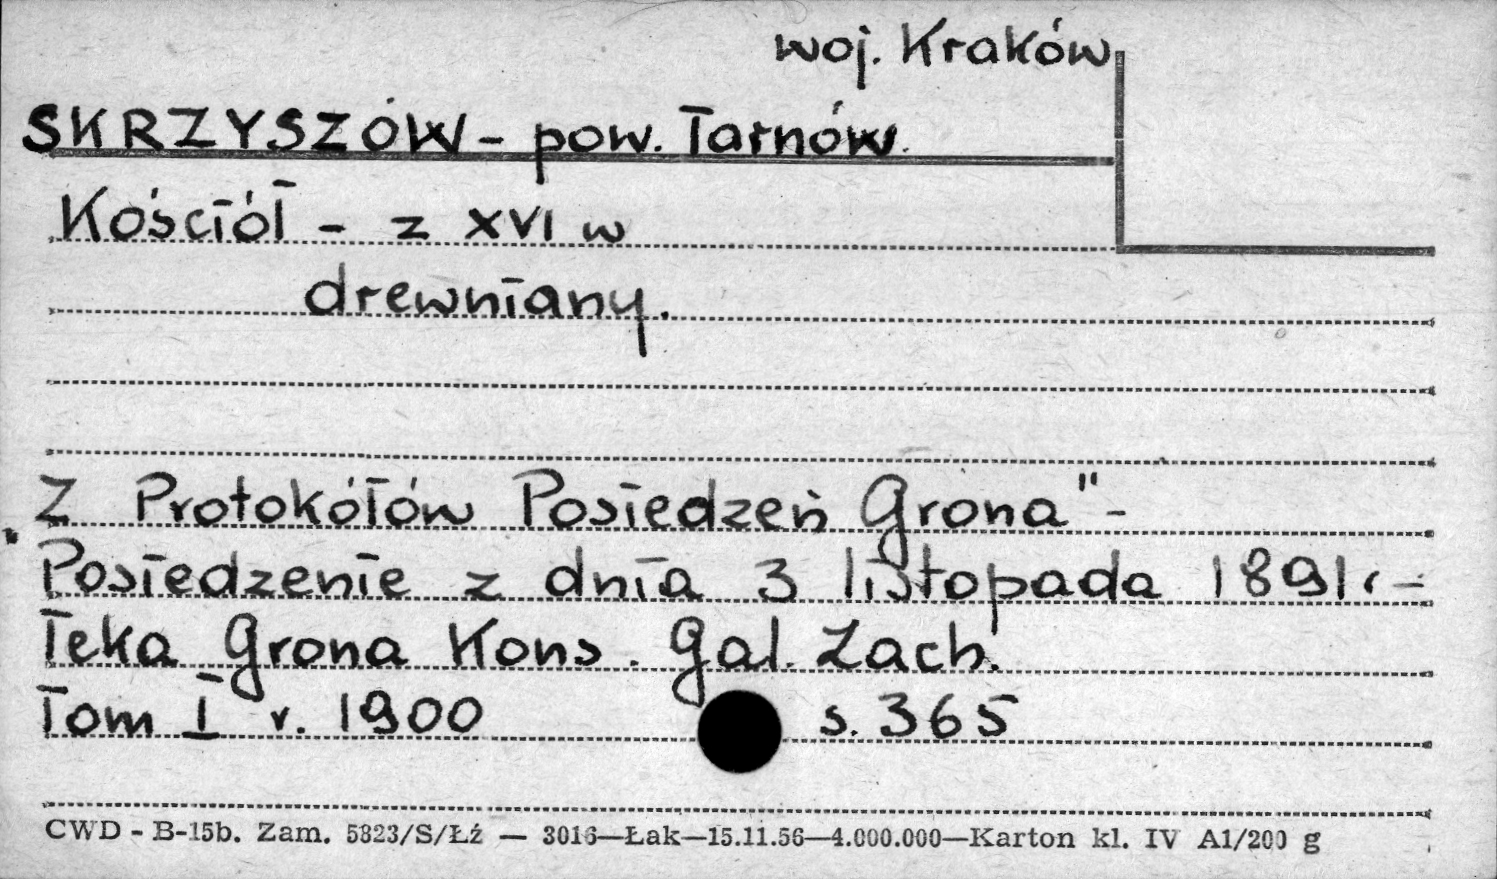 woj. Kraków
SKRZYSZÓW - pow. Tarnów.
Kościół - z XVI w
drewniany.
„Z Protokółów Posiedzeń Grona" -
Posiedzenie z dnia 3 listopada 1891r -
Teka Grona Kons. Gal. Zach.
Tom I r. 1900 s. 365
CWD - B-15b. Zam. 5823/S/Łź — 3016—Łak—15.11.56—4.000.000—Karton kl. IV A1/200 g